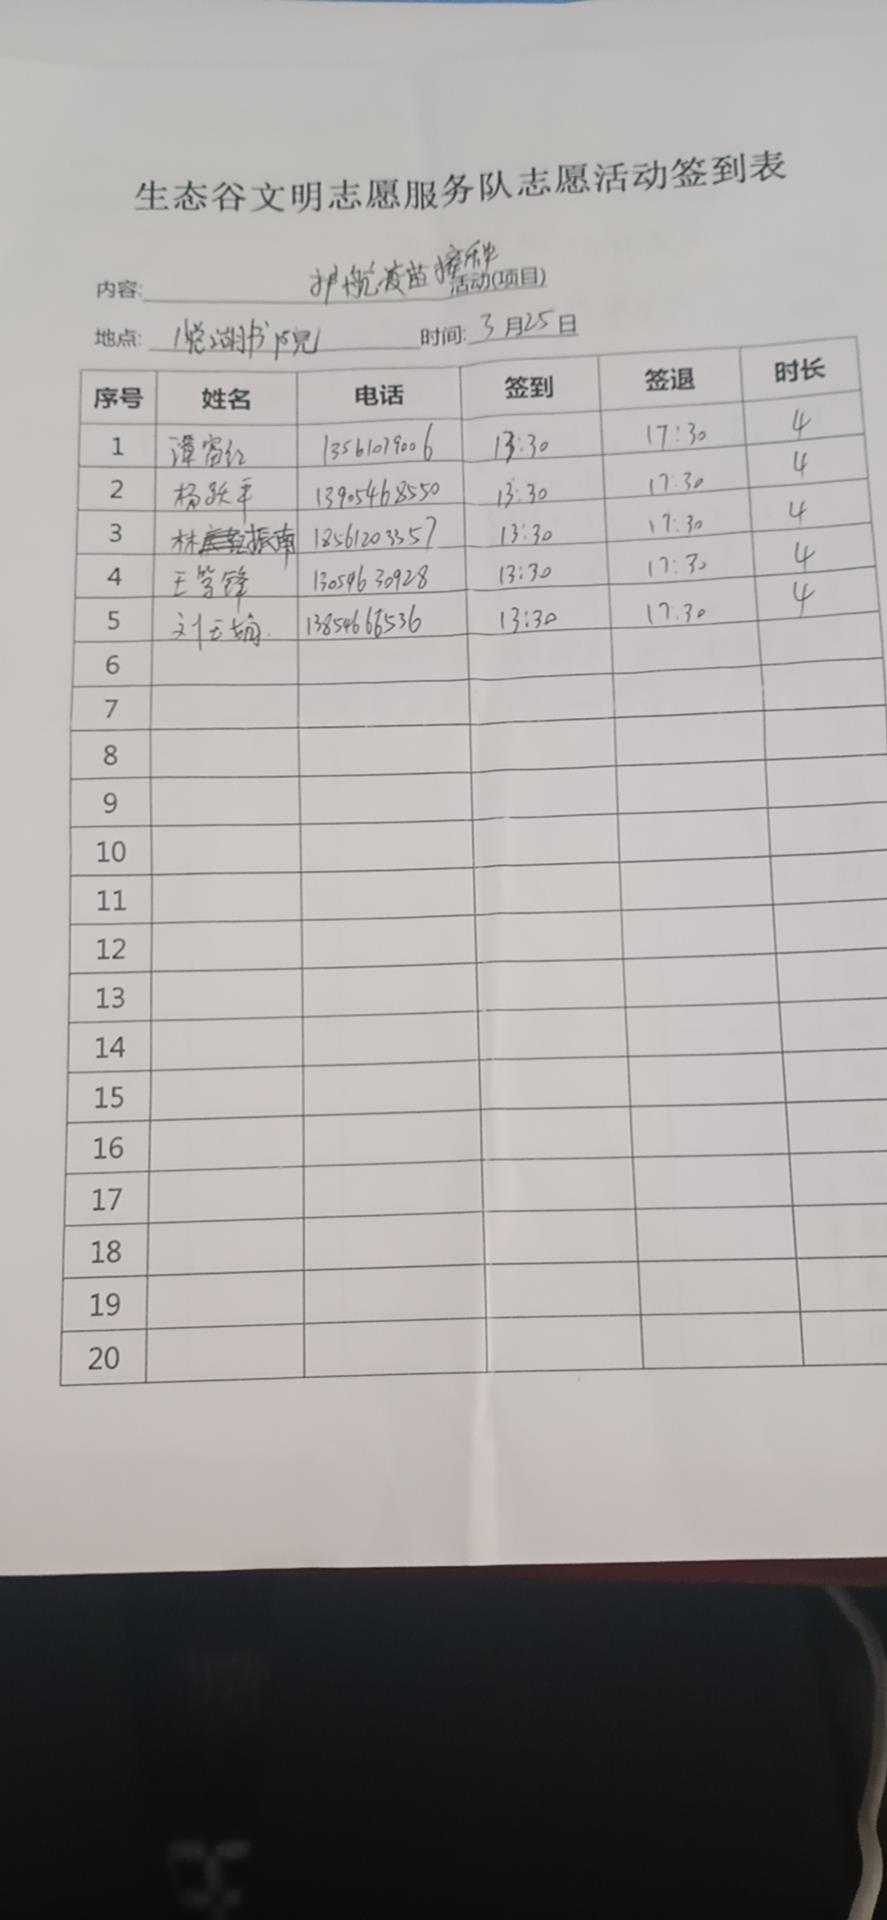 生态谷文明志愿服务队志愿活动签到表
内容: 护航疫苗接种 活动(项目)
地点: 悦湖书院 时间: 3月25日
序号 姓名 电话 签到 签退 时长
1 13561019006 13:30 17:30 4
2 杨跃平 13905468550 13:30 17:30 4
3 林振南 18561203357 13:30 17:30 4
4 13054630928 13:30 17:30 4
5 13854666536 13:30 17:30 4
6
7
8
9
10
11
12
13
14
15
16
17
18
19
20